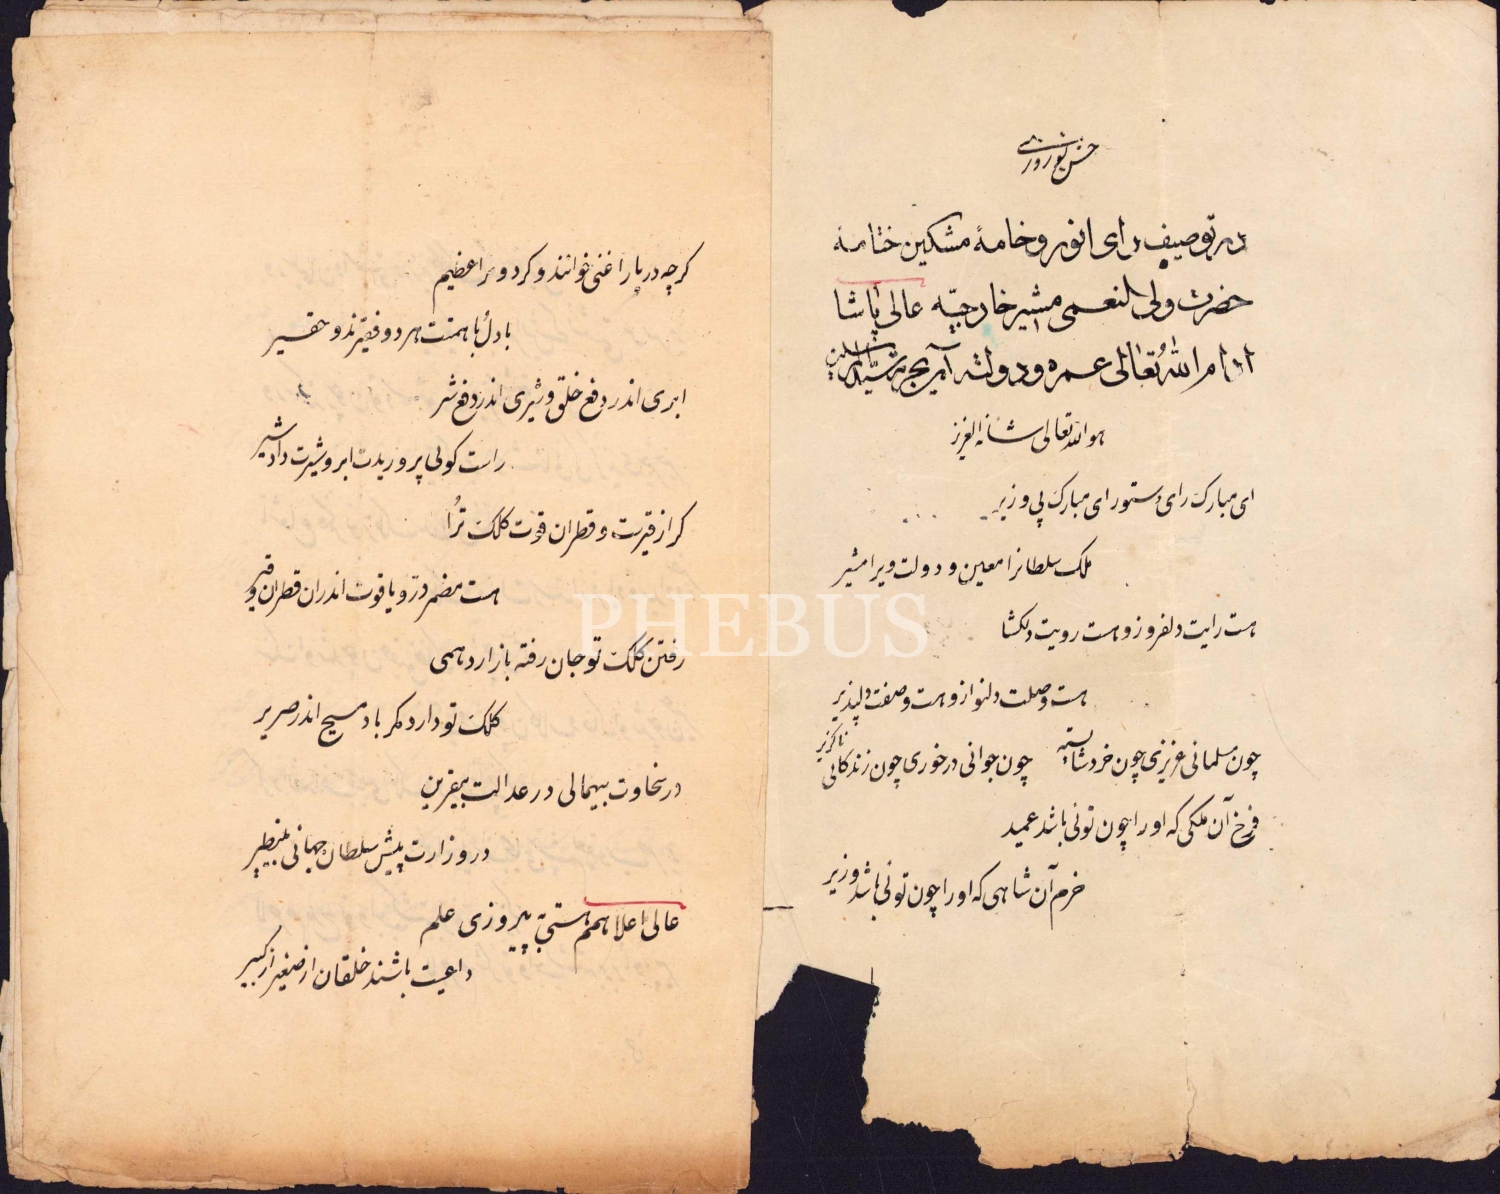 جشن نوروزی
در توصیف رای انور و خامهٔ مشکین ختامه
حضرت ولی النعمی مشیر خارجیّه عالی پاشا
ادام الله تعالی عمره و دولته آمین بحرمة سیّد المرسلین
هو الله تعالی شانه العزیز
ای مبارک رای دستور ای مبارک پی وزیر
ملک سلطانرا معین و دولت ویرا مشیر
هست رایت دلفروز و هست رویت دلکشا
هست وصلت دلنواز و هست وصفت دلپذیر
چون مسلمانی عزیزی چون خرد شایسته
چون جوانی درخوری چون زندکانی ناکزیر
فرخ آن ملکی که او را چون توئی باشد عمید
خرم آن شاهی که او را چون توئی باشد وزیر
کرچه دریا را غنی خوانند و کردون را عظیم
با دل با همتت هر دو فقیرند و حقیر
ابری اندر دفع خلق و شیری اندر دفع شر
راست کوئی پروریدت ابر و شیرت داد شیر
کر از قیرست و قطران قوت کلک تُرا
هست مضمر درّ و یاقوت اندران قطران و قیر
رفتن کلک تو جان رفته باز آرد همی
کلک تو دارد مکر باد مسیح اندر صریر
در سخاوت بیهمالی در عدالت بیقرین
در وزارت پیش سلطان جهانی بینظیر
عالی اعلا همم هستی به پیروزی علم
داعیت باشند خلقان از صغیر از کبیر
PHEBUS